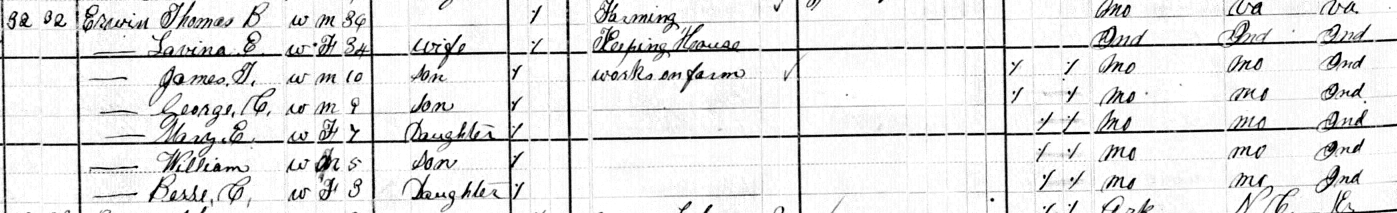 32 32 Erwin Thomas B w m 36 / Farming mo Va Va
— Lavina E w F 34 wife / Keeping House Ind Ind Ind
— James, T. w m 10 son / works on farm / / mo mo Ind
— George, C. w m 9 son / / / mo mo Ind
— Mary, E. w F 7 Daughter / / / mo mo Ind
— William w m 5 son / / / mo mo Ind
— Besse, C, w F 3 Daughter / / / mo mo Ind
Ark N C